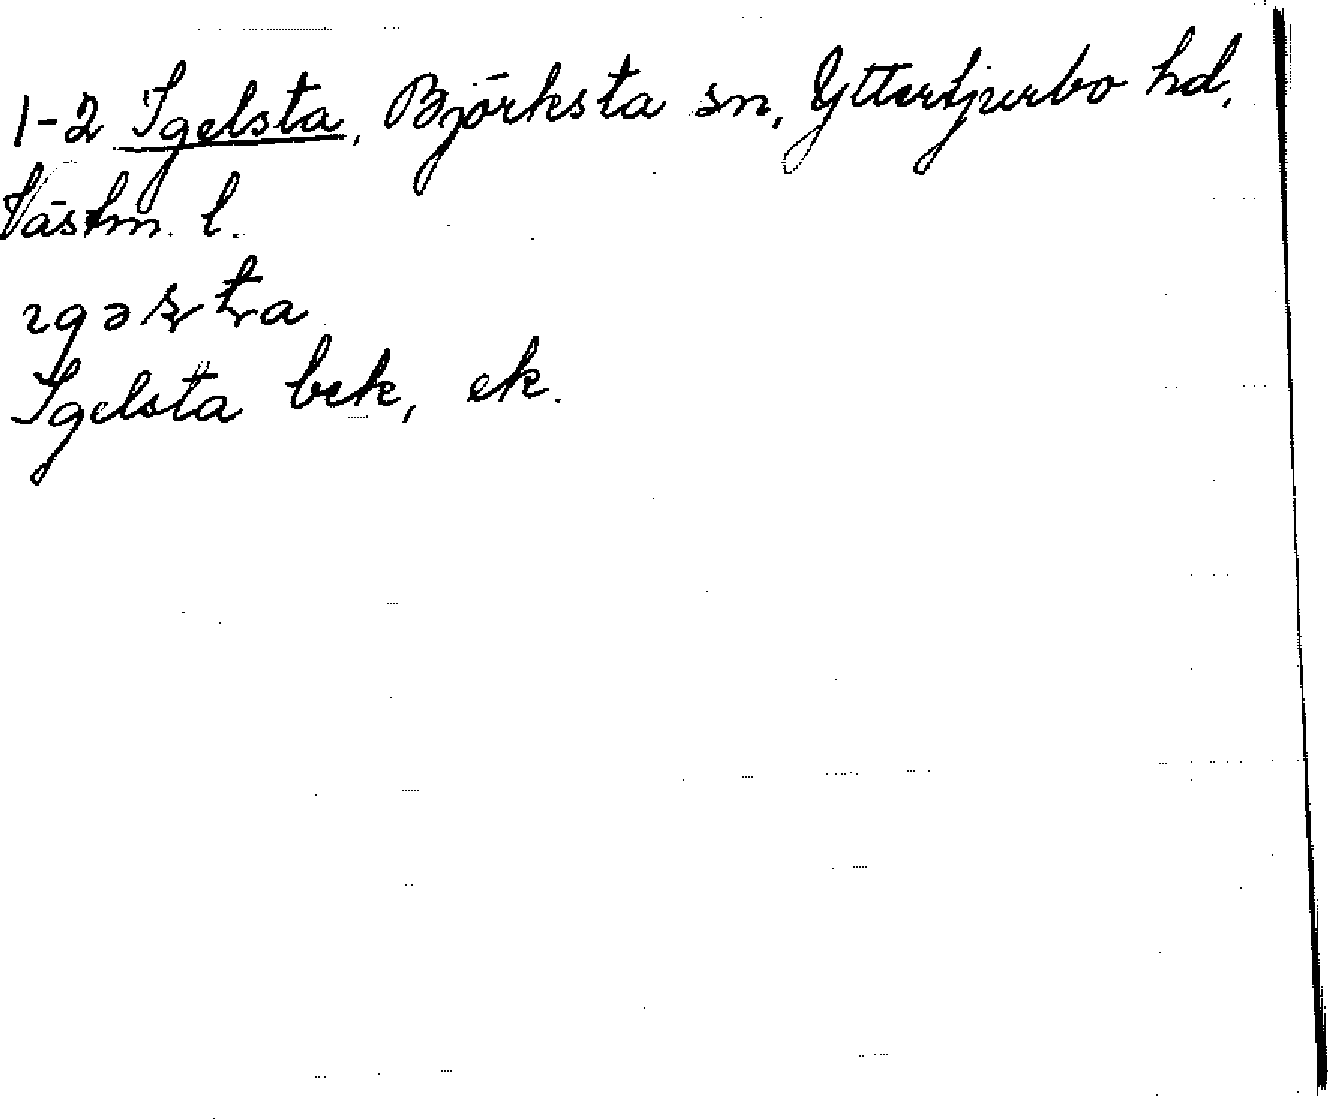 1-2 Igelsta, Björksta sn, Yttertjurbo hd,
Västm. l.
ɿgəʂʈa
Igelsta bek, ek.